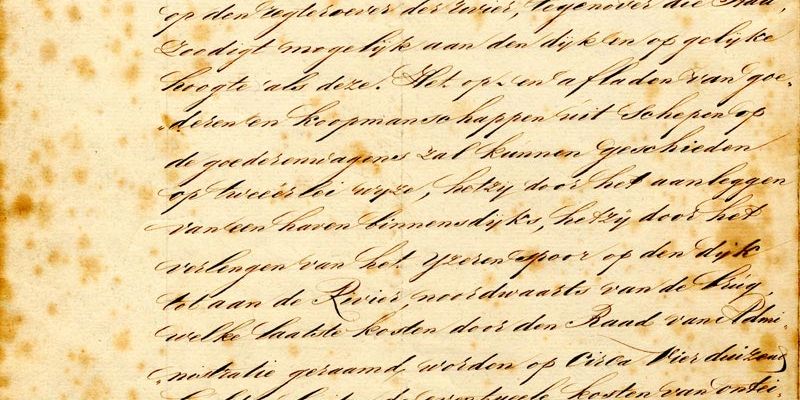 op den regteroever der rivier, tegenover die Stad,
zoodigt mogelijk aan den dijk en op gelijke
hoogte als deze. Het op- en afladen van goe-
„deren en koopmanschappen uit schepen op
de goederenwagens zal kunnen geschieden
op tweeërlei wyze, hetzy door het aanleggen
van een haven binnensdijks, hetzij door het
verlengen van het yzeren spoor op den dijk
tot aan de Rivier, noordwaarts van de brug,
welke laatste kosten door den Raad van Admi-
„nistratie geraamd worden op Circa Vier duizend
de eventuele kosten van ontei-